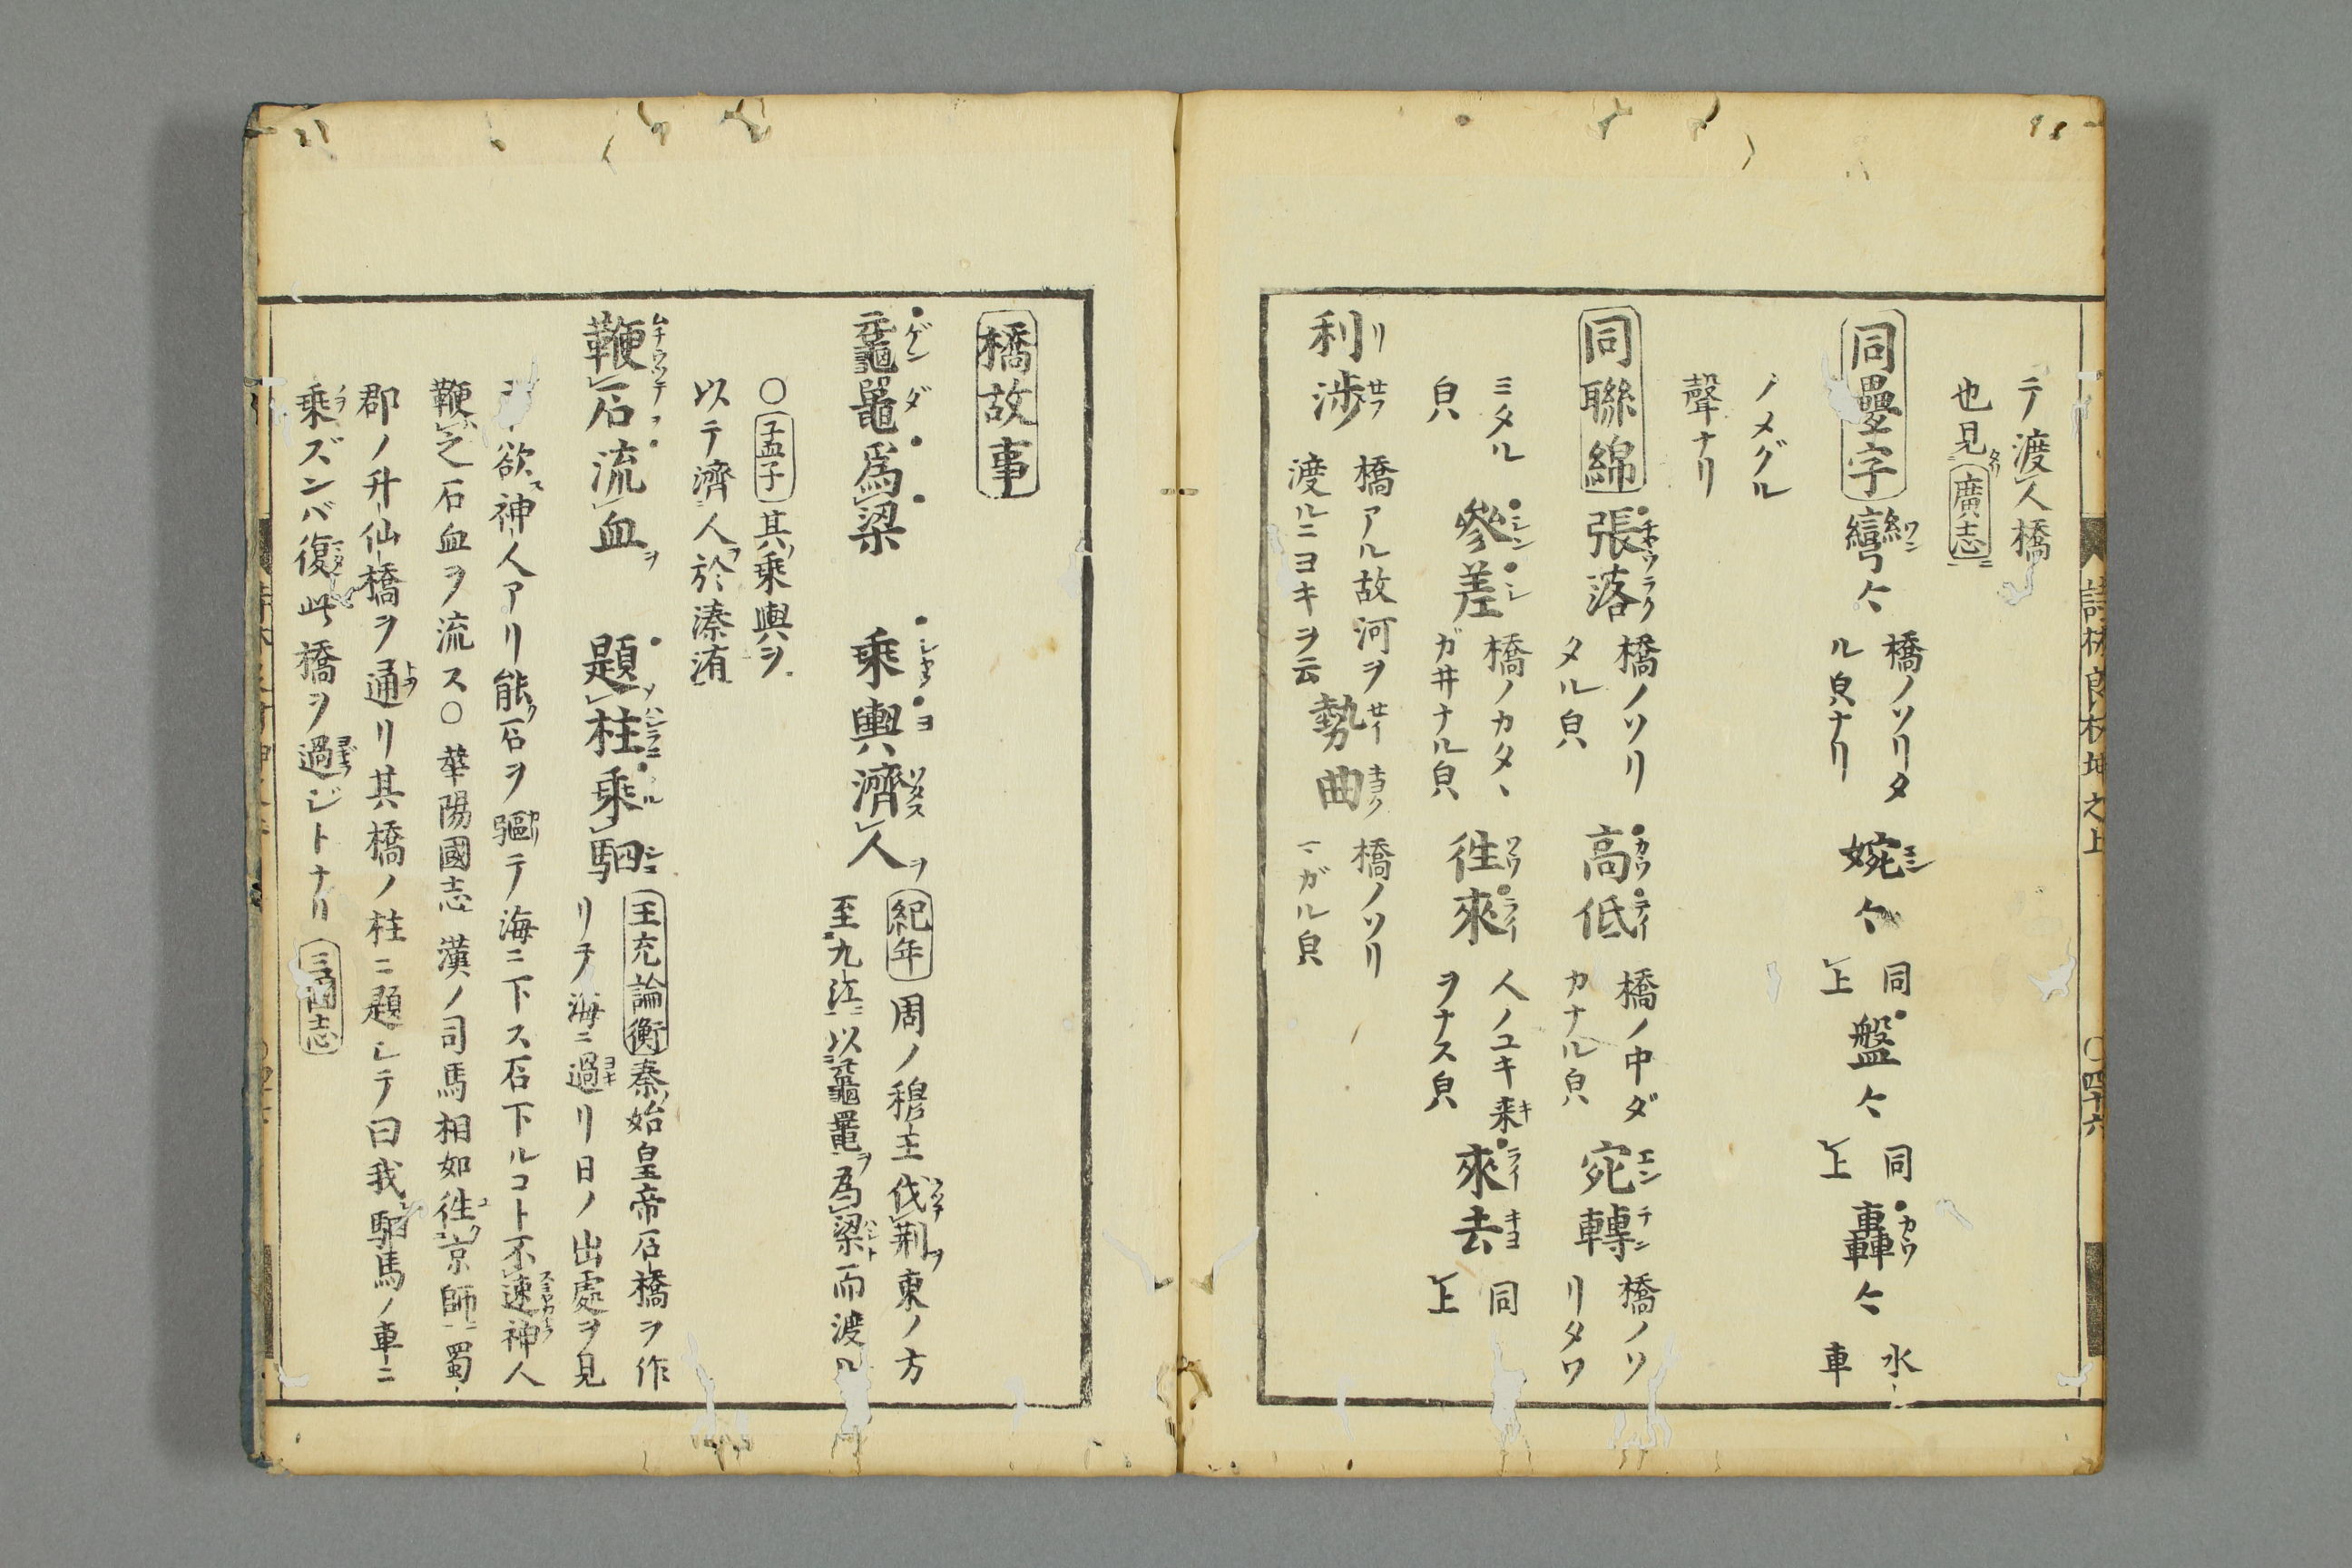 テ渡人橋
也見廣志
同疊字 彎々 橋ノソリタル皃ナリ 婉々 同上 盤々 同上 轟々 水車
ノメグル
聲ナリ
同聯綿 張落 橋ノソリタル皃 高低 橋ノ中ダカナル皃 宛轉 橋ノソリタワ
ミタル皃 參差 橋ノカタヽガ井ナル皃 往來 人ノユキ来ヲナス皃 來去 同上
利渉 橋アル故河ヲ渡ルニヨキヲ云 勢曲 橋ノソリマガル皃
詩林良材坤之上 〇四十六
橋故事
黿鼉爲梁 乘輿濟人 紀年 周ノ穆王伐荆東ノ方
至九江以黿鼉為梁而渡ル
〇孟子其乘輿ヲ
以テ濟人於溱洧
鞭石流血 題柱乘駟 王充論衡 秦始皇帝石橋ヲ作
リテ海ニ過リ日ノ出處ヲ見
欲神人アリ能石ヲ驅テ海ニ下ス石下ルコト不速神人
鞭之石血ヲ流ス〇華陽國志 漢ノ司馬相如往京師蜀
郡ノ升仙橋ヲ通リ其橋ノ柱ニ題シテ曰我駟馬ノ車ニ
乗ズンバ復此橋ヲ過ジトナリ 三國志